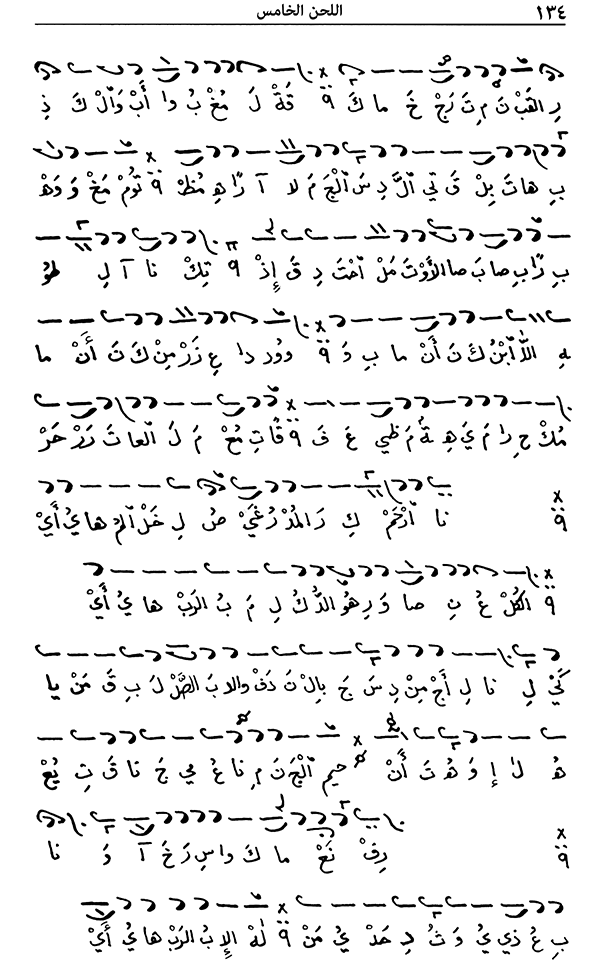 ١٣٤ اللحن الخامس
رِ القَبْ نَ مِ تَ رَجْ خَ ما كَ قَةْ لَ مُغْ بُ وا أَبْ وَالْ كَ ذِ
بِ هاتَ بِلْ قَ تي الَّ دِ سَ الْجَ مَ لا آ راهِ مُظْ تومْ مَخْ وَ وَهْ
بِ رابِ صابَ صا الأَوْتَ مَلْ اخْتَ دِ قَ إِذْ تِكْ نا آ لِ طو
هِ اللّٰ ابْنُ كَ نَ أَنْ ما بِ وَ وود دا عِ زَرْ مِنْ كَ نَ أَنْ ما
مُكْ حِ را مَ يَ هِ ةُ مَ ظي عَ فَ قاتِ مُعْ مَ لَ العا تَ رَرْ حَرْ
نا ارْحَمْ كِ رَ المُدْ رُ غَيْ صُ لِ خَلْ المُ ها يُ أَيْ
الكُلْ عُ نِ صا وَ رِ هُوْ الدُّ كُ لِ مَ بُ الرَبْ ها يُ أَيْ
كَيْ لِ نا لِ أَجْ مِنْ دِ سَ جَ بِالْ تَ دَفْ وَالا بَ الصَّلْ لَ بِ قَ مَنْ يا
هُ لٰ إِ وَ هُ تَ أَنْ حيم الْجَ نَ مِ نا عُ مي جَ نا قَ تِ يُعْ
رِفْ نَعْ ما كَ واسِ رَ خَ آ وَ نا
بِ عُ ذي يُ وَ تُ دِ حَدْ يُ مَنْ لٰهْ الإِ بُ الرَبْ ها يُ أَيْ